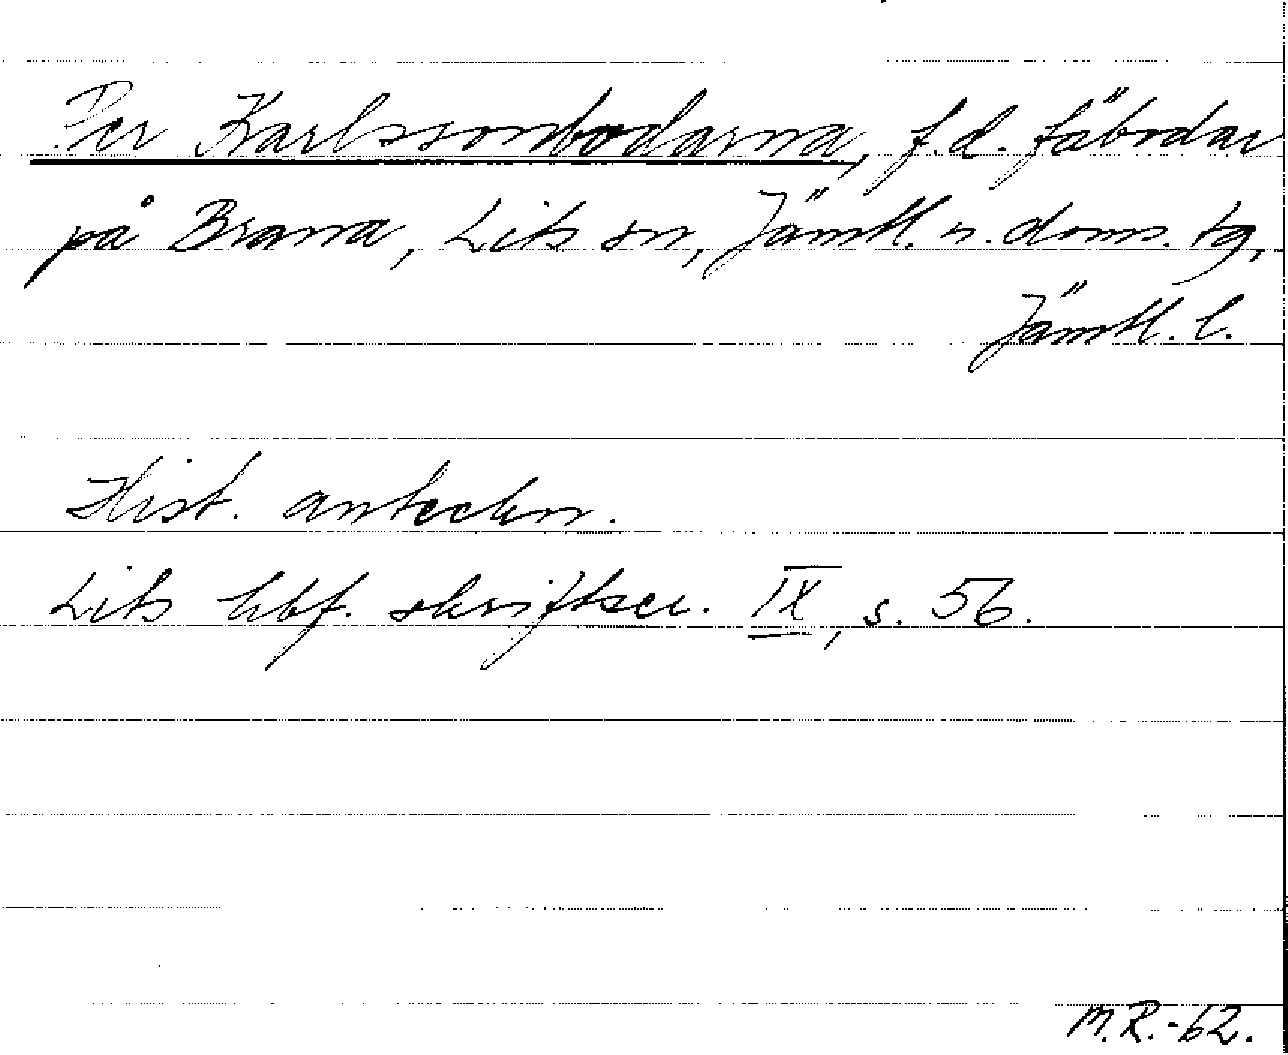 Per Karlssonbodarna, f.d. fäbodar
på Brana, Lits sn, Jämtl. n. doms. tg,
Jämtl. l.
Hist. anteckn.
Lits hbf. skriftser. IX, s. 56.
M.R.-62.